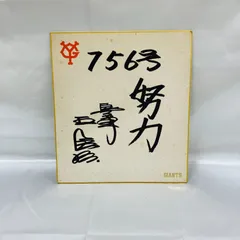 756号
努力
GIANTS